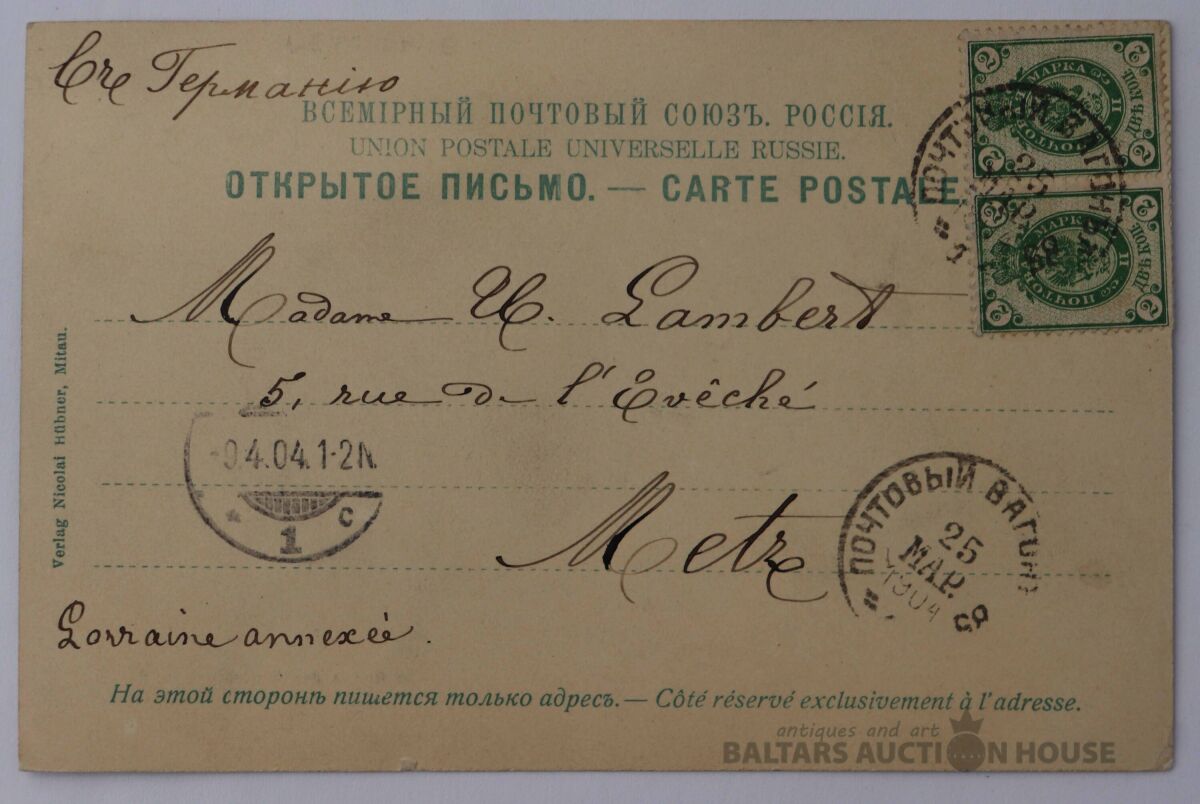 Въ Германію
ВСЕМІРНЫЙ ПОЧТОВЫЙ СОЮЗЪ. РОССІЯ.
UNION POSTALE UNIVERSELLE RUSSIE.
ОТКРЫТОЕ ПИСЬМО. — CARTE POSTALE.
2 2
МАРКА
ПОЧТОВ
ДВѢ КОП.
2 2
2 2
МАРКА
ПОЧТОВ
ДВѢ КОП.
2 2
ПОЧТОВЫЙ ВАГОНЪ
25
Madame H. Lambert
5, rue de l'Évêché
Metz
Lorraine annexée.
4.04.1-2N.
* 1 c
ПОЧТОВЫЙ ВАГОНЪ
25
МАР.
1904
Verlag Nicolai Hübner, Mitau.
На этой сторонѣ пишется только адресъ. — Côté réservé exclusivement à l'adresse.
antiques and art
BALTARS AUCTION HOUSE